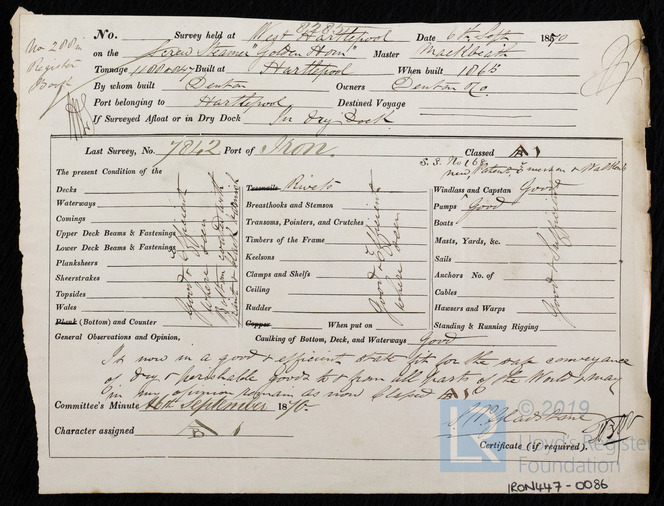 No. Survey held at West Hartlepool Date 6th Sept 1870
on the Screw Steamer "Golden Horn" Master Mackbeath
Tonnage Built at Hartlepool When built 1865
By whom built Denton Owners Denton & Co.
Port belonging to Hartlepool Destined Voyage
If Surveyed Afloat or in Dry Dock In Dry Dock
Register Book
Last Survey, No. 7842 Port of Iron. Classed A 1
S.S. No 1 68
new Patent Emerson & Walker's
The present Condition of the
Decks
Waterways
Comings
Upper Deck Beams & Fastenings
Lower Deck Beams & Fastenings
Planksheers
Sheerstrakes
Topsides
Wales
Plank (Bottom) and Counter
Good & Efficient
where seen
Treenails Rivets
Breasthooks and Stemson
Transoms, Pointers, and Crutches
Timbers of the Frame
Keelsons
Clamps and Shelfs
Ceiling
Rudder
Copper When put on
Good & Efficient
where seen
Windlass and Capstan Good
Pumps Good
Boats
Masts, Yards, &c.
Sails
Anchors No. of
Cables
Hawsers and Warps
Standing & Running Rigging
Good & Sufficient
General Observations and Opinion, Caulking of Bottom, Deck, and Waterways Good
Is now in a good & efficient state fit for the safe conveyance
of dry & perishable goods to & from all parts of the World & may
in my opinion remain as now Classed A 1
Committee's Minute September 1870
Character assigned A 1
Certificate (if required).
© 2019
LR
Lloyd's Register
Foundation
IRON447-0086